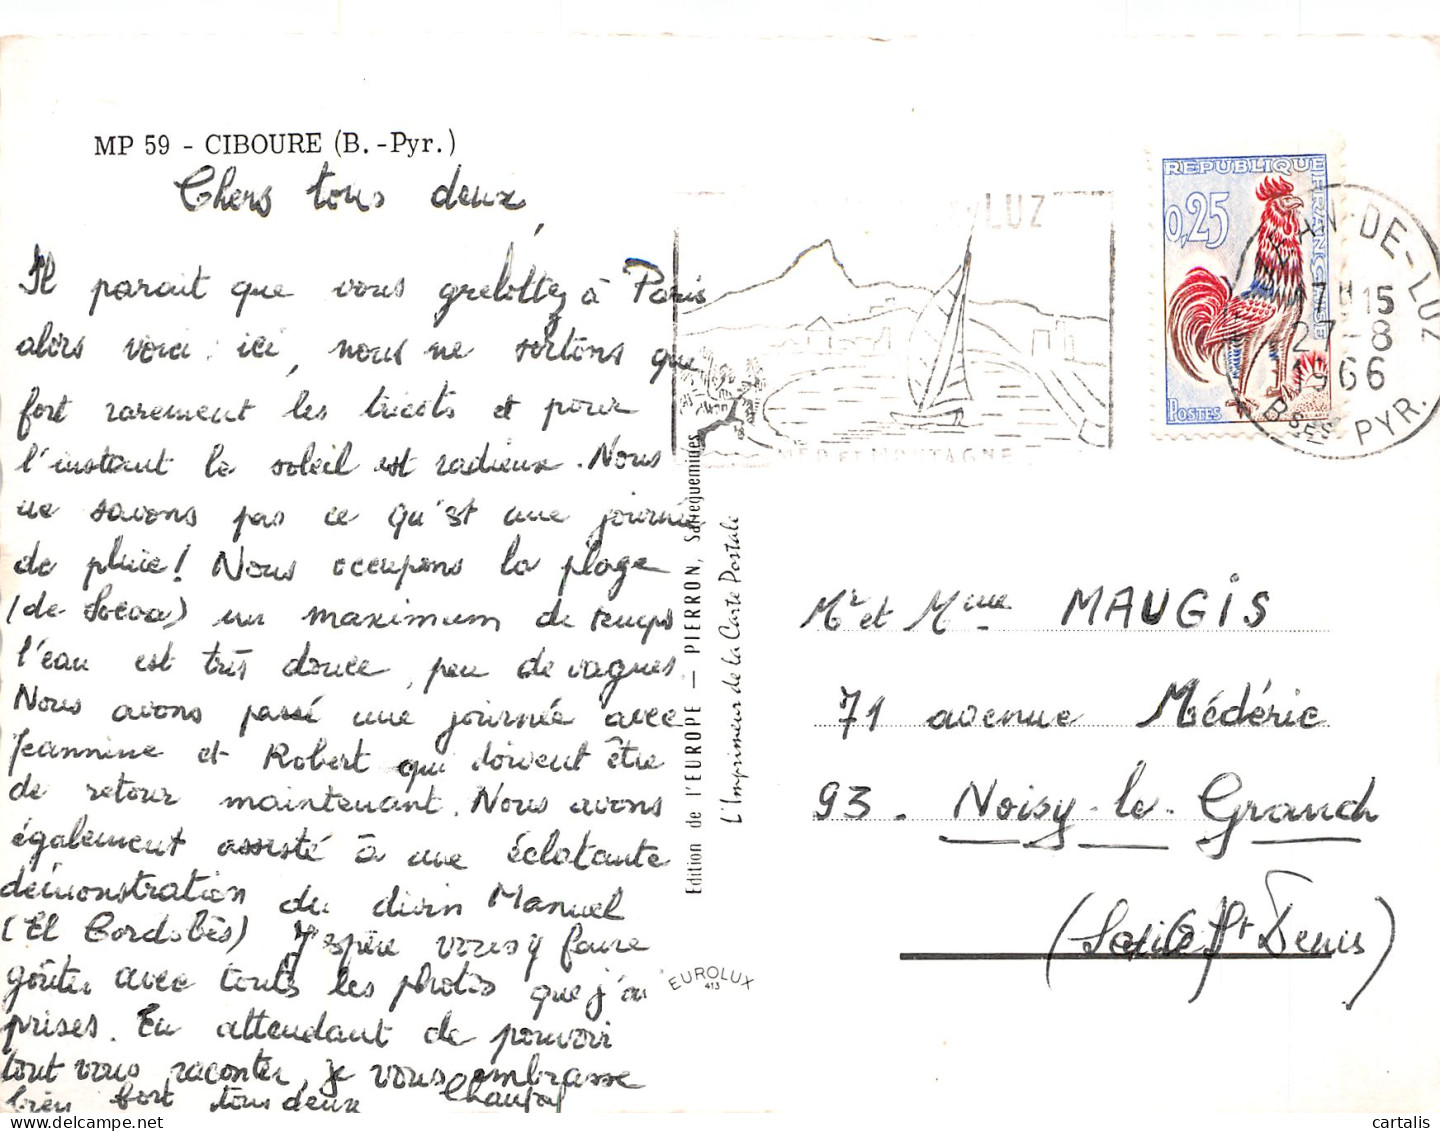 MP 59 - CIBOURE (B.-Pyr.)
Chers tous deux,
Il parait que vous grelottez à Paris
alors voici : ici, nous ne sortons que
fort rarement les tricots et pour
l'instant le soleil est radieux. Nous
ne savons pas ce qu'est une journée
de pluie ! Nous occupons la plage
(de Socoa) un maximum de temps
l'eau est très douce, peu de vagues.
Nous avons passé une journée avec
Jeannine et Robert qui doivent être
de retour maintenant. Nous avons
également assisté à une éclatante
démonstration du divin Manuel
(El Cordobès) J'espère vous y faire
goûter avec toutes les photos que j'ai
prises. En attendant de pouvoir
tout vous raconter, je vous embrasse
bien fort tous deux
Edition de l'EUROPE — PIERRON, Sarreguemines
L'Imprimeur de la Carte Postale
EUROLUX
413
LUZ
MER ET MONTAGNE
REPUBLIQUE FRANÇAISE
0,25
POSTES
JEAN-DE-LUZ
17H15
27-8
1966
BSES PYR.
Mr et Mme MAUGIS
71 avenue Médéric
93. Noisy-le-Grand
(Seine St Denis)